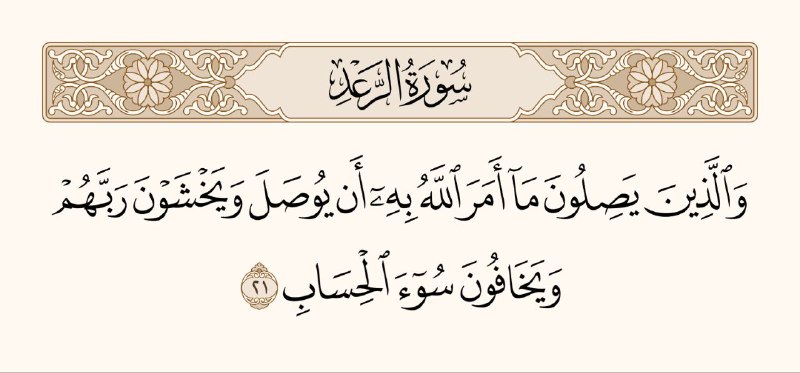 سُورَةُ الرَّعْدِ
وَٱلَّذِينَ يَصِلُونَ مَآ أَمَرَ ٱللَّهُ بِهِۦٓ أَن يُوصَلَ وَيَخْشَوْنَ رَبَّهُمْ
وَيَخَافُونَ سُوٓءَ ٱلْحِسَابِ ٢١